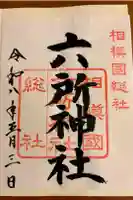 相模國総社
六所神社
相模國
総社
令和八年五月三日